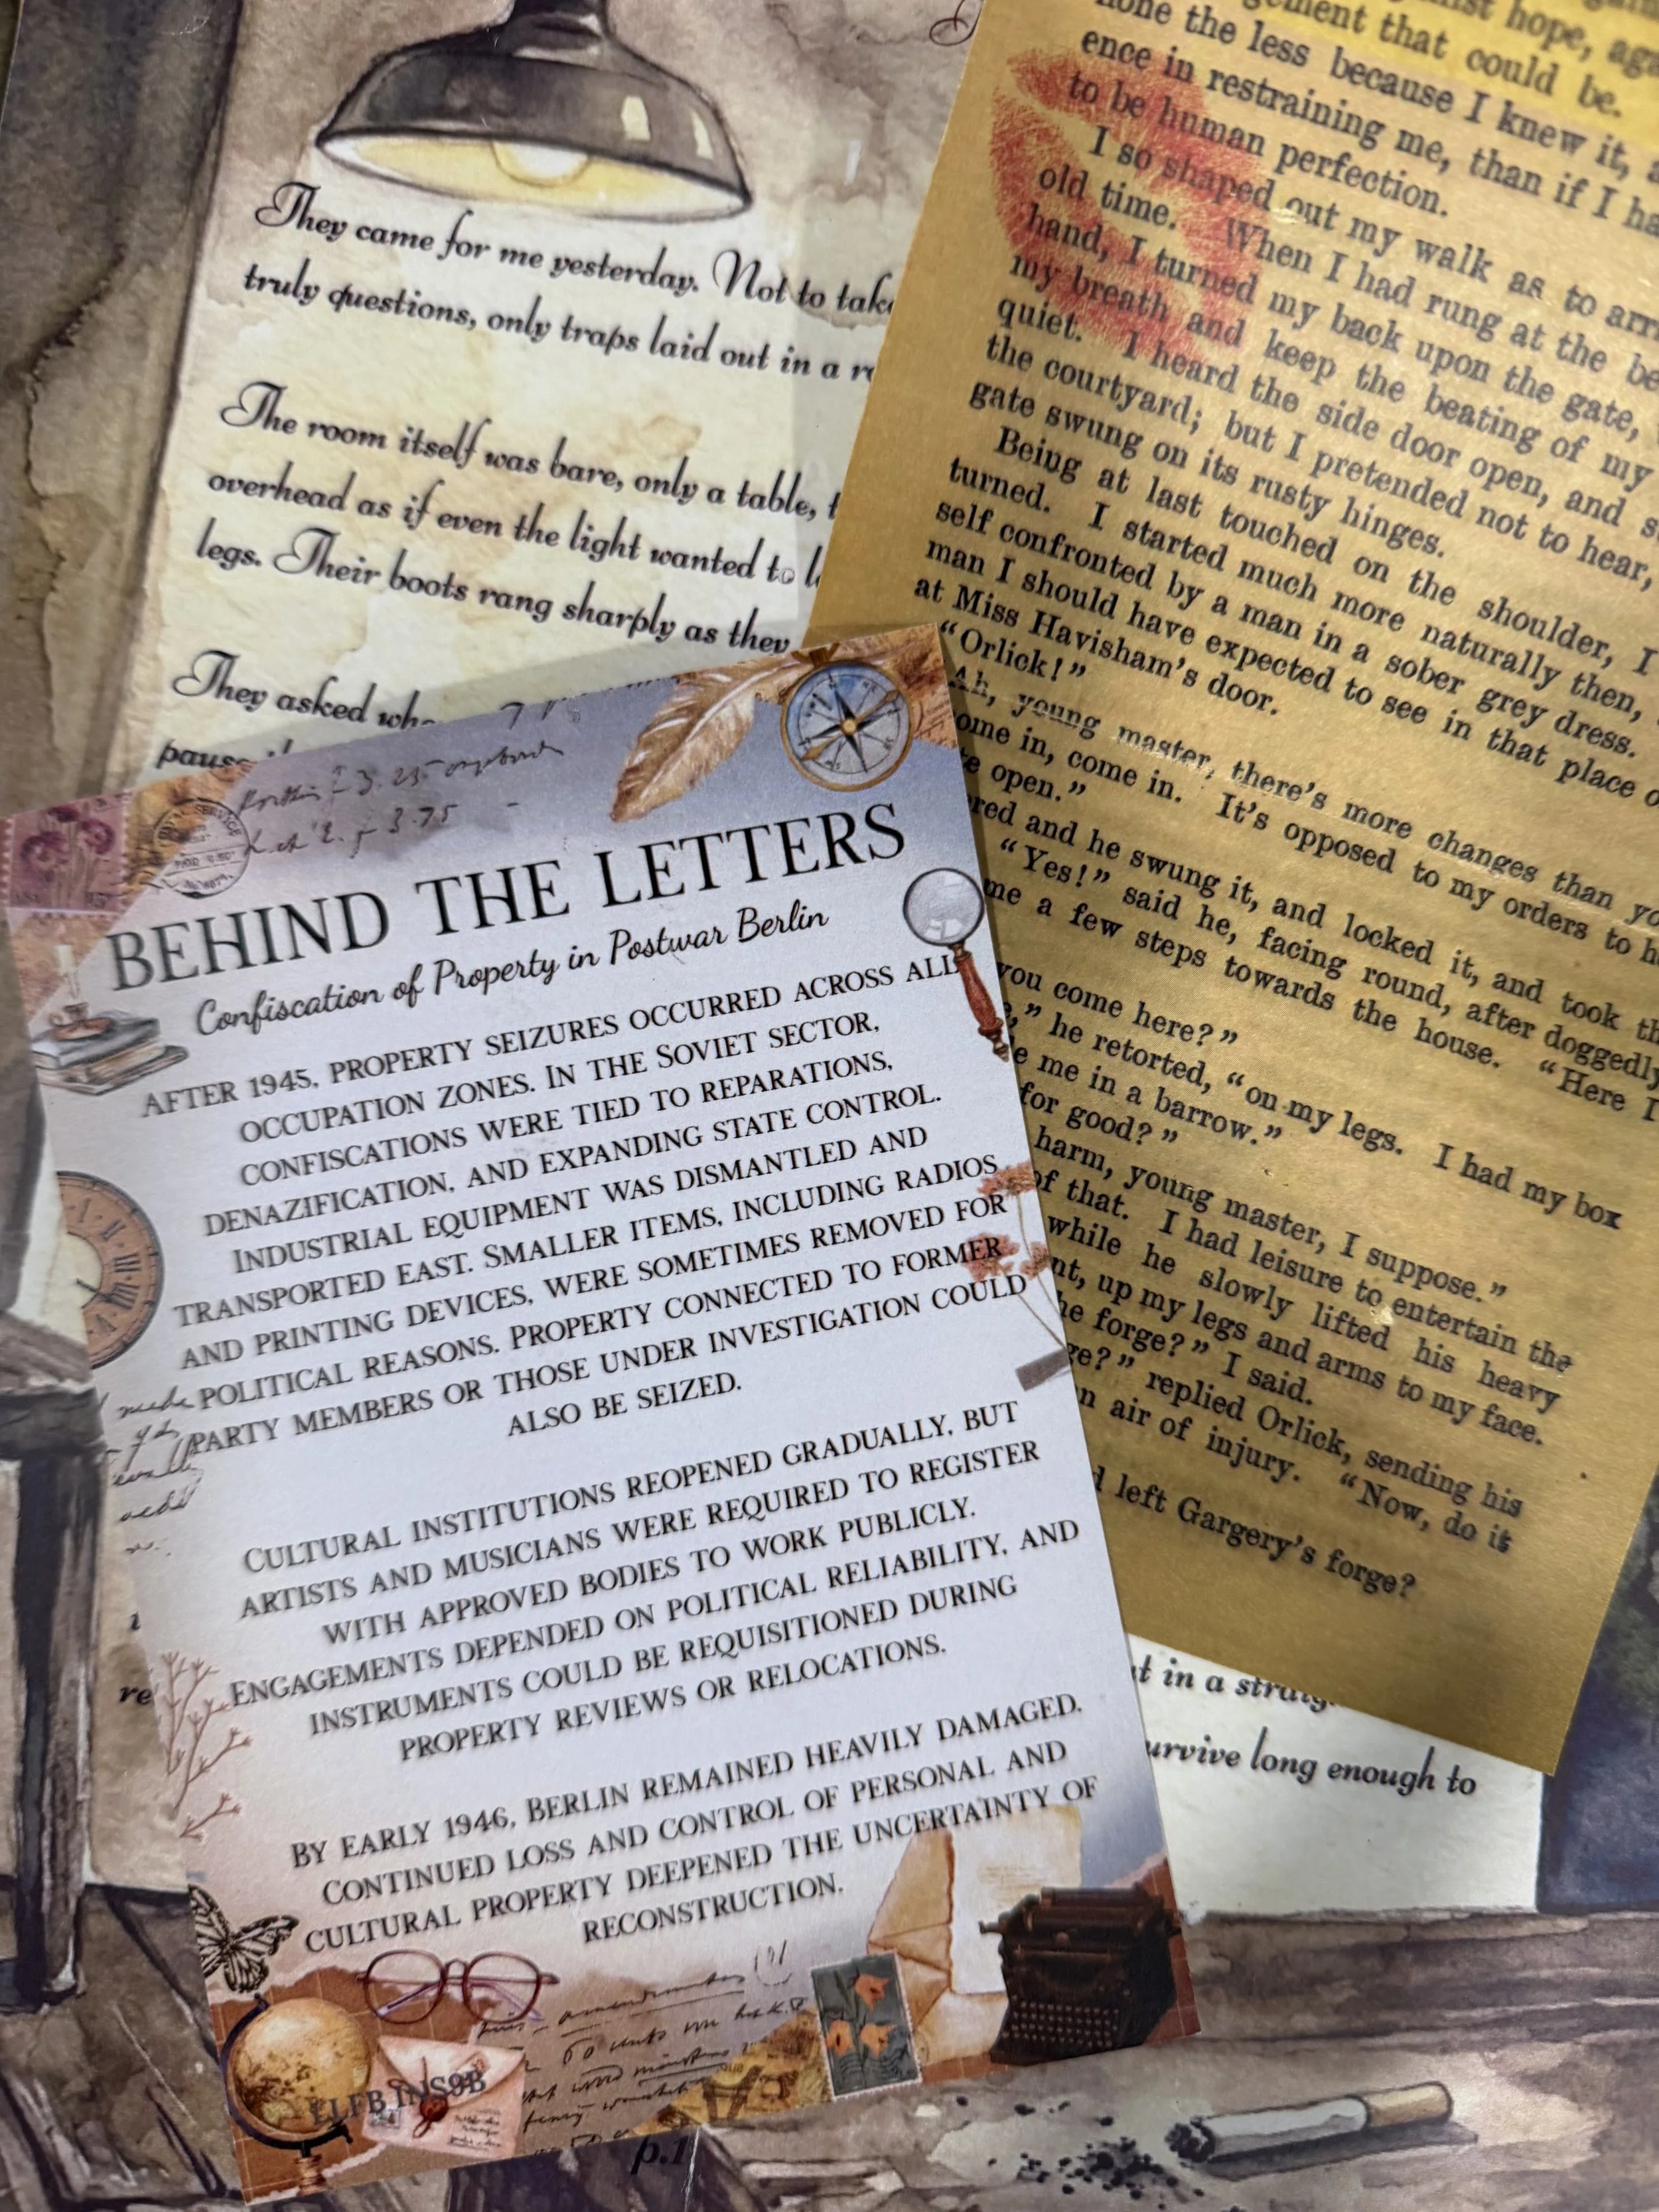 They came for me yesterday. Not to take
truly questions, only traps laid out in a
The room itself was bare, only a table,
overhead as if even the light wanted to
legs. Their boots rang sharply as they
They asked
gement that could be.
none the less because I knew it,
ence in restraining me, than if I
to be human perfection.
I so shaped out my walk as to
old time. When I had rung at the
hand, I turned my back upon the gate,
my breath and keep the beating of my
quiet. I heard the side door open, and
the courtyard; but I pretended not to hear,
gate swung on its rusty hinges.
Being at last touched on the shoulder, I
turned. I started much more naturally then,
self confronted by a man in a sober grey dress.
man I should have expected to see in that place
at Miss Havisham's door.
"Orlick!"
Ah, young master, there's more changes than
ome in, come in. It's opposed to my orders to
te open."
red and he swung it, and locked it, and took
"Yes!" said he, facing round, after doggedly
me a few steps towards the house. "Here I
you come here?"
," he retorted, "on my legs. I had my box
e me in a barrow."
for good?"
harm, young master, I suppose."
of that. I had leisure to entertain the
while he slowly lifted his heavy
nt, up my legs and arms to my face.
he forge?" I said.
ge?" replied Orlick, sending his
n air of injury. "Now, do it
left Gargery's forge?
BEHIND THE LETTERS
Confiscation of Property in Postwar Berlin
AFTER 1945, PROPERTY SEIZURES OCCURRED ACROSS ALL
OCCUPATION ZONES. IN THE SOVIET SECTOR,
CONFISCATIONS WERE TIED TO REPARATIONS,
DENAZIFICATION, AND EXPANDING STATE CONTROL.
INDUSTRIAL EQUIPMENT WAS DISMANTLED AND
TRANSPORTED EAST. SMALLER ITEMS, INCLUDING RADIOS
AND PRINTING DEVICES, WERE SOMETIMES REMOVED FOR
POLITICAL REASONS. PROPERTY CONNECTED TO FORMER
PARTY MEMBERS OR THOSE UNDER INVESTIGATION COULD
ALSO BE SEIZED.
CULTURAL INSTITUTIONS REOPENED GRADUALLY, BUT
ARTISTS AND MUSICIANS WERE REQUIRED TO REGISTER
WITH APPROVED BODIES TO WORK PUBLICLY.
ENGAGEMENTS DEPENDED ON POLITICAL RELIABILITY, AND
INSTRUMENTS COULD BE REQUISITIONED DURING
PROPERTY REVIEWS OR RELOCATIONS.
BY EARLY 1946, BERLIN REMAINED HEAVILY DAMAGED.
CONTINUED LOSS AND CONTROL OF PERSONAL AND
CULTURAL PROPERTY DEEPENED THE UNCERTAINTY OF
RECONSTRUCTION.
LLFB INS9B
p.1
t in a
urvive long enough to